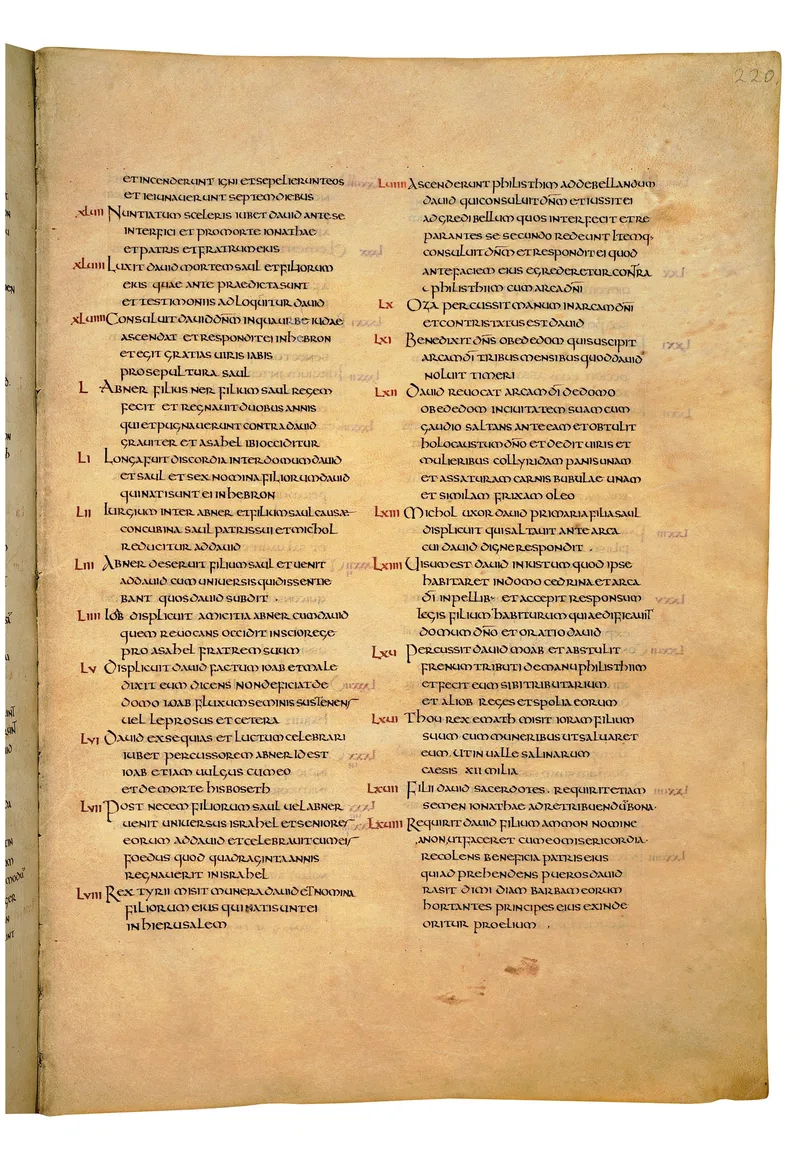 220
et incenderunt igni et sepelierunt eos
et ieiunauerunt septem diebus
xlvii Nuntiatum sceleris iubet dauid ante se
interfici et pro morte ionathae
et patris et fratrum eius
xlviii Luxit dauid mortem saul et filiorum
eius quae ante praedicta sunt
et testimoniis adloquitur dauid
xlviiii Consuluit dauid dñm in qua urbe iudae
ascendat et respondit ei in hebron
et egit gratias uiris iabis
pro sepultura saul
L Abner filius ner filium saul regem
fecit et regnauit duobus annis
qui et pugnauerunt contra dauid
grauiter et asahel ibi occiditur
Li Longa fuit discordia inter domum dauid
et saul et sex nomina filiorum dauid
qui nati sunt ei in hebron
Lii Iurgium inter abner et filium saul causa
concubina saul patris sui et michol
reducitur ad dauid
Liii Abner deseruit filium saul et uenit
ad dauid cum uniuersis qui dissentie
bant quos dauid subdit .
Liiii Iob displicuit amicitia abner cum dauid
quem reuocans occidit inscio rege
pro asahel fratrem suum
Lv Displicuit dauid factum ioab et male
dixit eum dicens non deficiat de
domo ioab fluxum seminis sustenens
uel leprosus et cetera
Lvi Dauid exsequias et luctum celebrari
iubet percussorem abner id est
ioab etiam uulgus cum eo
et de morte hisboseth
Lvii Post necem filiorum saul uel abner
uenit uniuersus israhel et seniores
eorum ad dauid et celebrauit cum eis
foedus quod quadraginta annis
regnauerit in israhel
Lviii Rex tyrii misit munera dauid et nomina
filiorum eius qui nati sunt ei
in hierusalem
Lviiii Ascenderunt philisthim ad debellandum
dauid qui consuluit dñm et iussit ei
adgredi bellum quos interfecit et re
parantes se secundo redeunt Itemq·
consuluit dñm et respondit ei quod
ante faciem eius egrederetur contra
philisthiim cum arca dñi
Lx Oza percussit manum in arcam dñi
et contristatus est dauid
Lxi Benedixit dñs obededom qui suscipit
arcam di tribus mensibus quod dauid
noluit timeri
Lxii Dauid reuocat arcam di de domo
obededom in ciuitatem suam cum
gaudio saltans ante eam et obtulit
holocaustum dño et dedit uiris et
mulieribus collyridam panis unam
et assaturam carnis bubulae unam
et similam frixam oleo
Lxiii Michol uxor dauid primaria filia saul
displicuit qui saltauit ante arca
cui dauid digne respondit .
Lxiiii Uisum est dauid iniustum quod ipse
habitaret in domo cedrina et arca
di in pellib· et accepit responsum
legis filium habiturum qui aedificauit
domum dño et oratio dauid
Lxv Percussit dauid moab et abstulit
frenum tributi de manu philisthiim
et fecit eum sibi tributarium.
et aliob reges et spolia eorum
Lxvi Thou rex emath misit ioram filium
suum cum muneribus ut saluaret
eum. ut in ualle salinarum
caesis xii milia
Lxvii Filii dauid sacerdotes. requirit etiam
semen ionathae ad retribuendum bona·
Lxviii Requirit dauid filium ammon nomine
anon, ut faceret cum eo misericordia·
recolens beneficia patris eius
qui adprehendens pueros dauid
rasit dimidiam barbam eorum
hortantes principes eius exinde
oritur proelium .